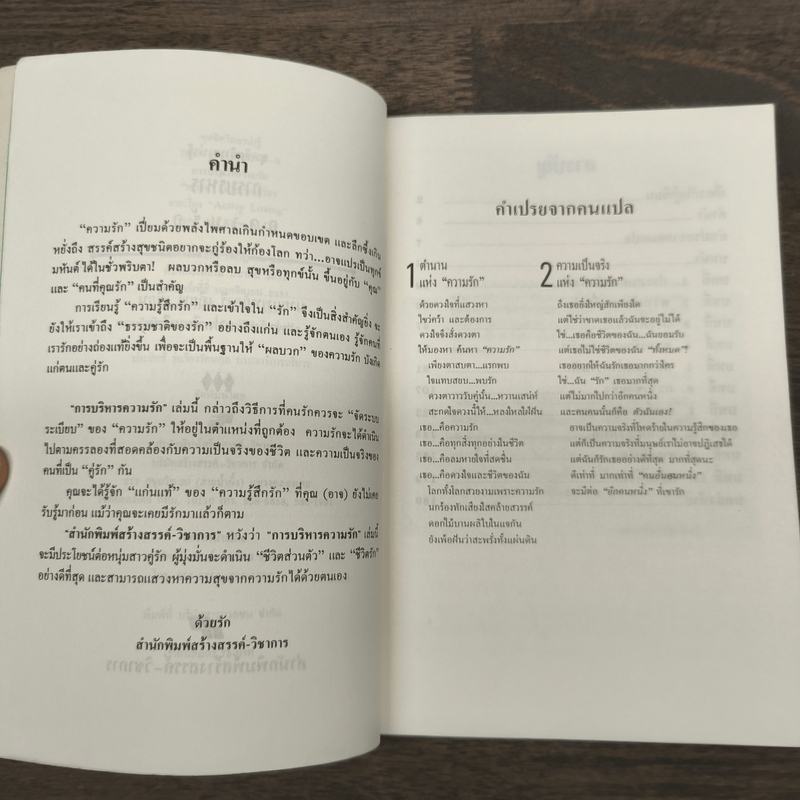 คำนำ
"ความรัก" เปี่ยมด้วยพลังไพศาลเกินกำหนดขอบเขต และลึกซึ้งเกิน
หยั่งถึง สรรค์สร้างสุขชนิดอยากจะกู่ร้องให้ก้องโลก ทว่า...อาจแปรเป็นทุกข์
มหันต์ได้ในชั่วพริบตา! ผลบวกหรือลบ สุขหรือทุกข์นั้น ขึ้นอยู่กับ "คุณ"
และ "คนที่คุณรัก" เป็นสำคัญ
การเรียนรู้ "ความรู้สึกรัก" และเข้าใจใน "รัก" จึงเป็นสิ่งสำคัญยิ่ง จะ
ยังให้เราเข้าถึง "ธรรมชาติของรัก" อย่างถึงแก่น และรู้จักตนเอง รู้จักคนที่
เรารักอย่างถ่องแท้ยิ่งขึ้น เพื่อจะเป็นพื้นฐานให้ "ผลบวก" ของความรัก บังเกิด
แก่ตนและคู่รัก
"การบริหารความรัก" เล่มนี้ กล่าวถึงวิธีการที่คนรักควรจะ "จัดระบบ
ระเบียบ" ของ "ความรัก" ให้อยู่ในตำแหน่งที่ถูกต้อง ความรักจะได้ดำเนิน
ไปตามครรลองที่สอดคล้องกับความเป็นจริงของชีวิต และความเป็นจริงของ
คนที่เป็น "คู่รัก" กัน
คุณจะได้รู้จัก "แก่นแท้" ของ "ความรู้สึกรัก" ที่คุณ (อาจ) ยังไม่เคย
รับรู้มาก่อน แม้ว่าคุณจะเคยมีรักมาแล้วก็ตาม
"สำนักพิมพ์สร้างสรรค์-วิชาการ" หวังว่า "การบริหารความรัก" เล่มนี้
จะมีประโยชน์ต่อหนุ่มสาวคู่รัก ผู้มุ่งมั่นจะดำเนิน "ชีวิตส่วนตัว" และ "ชีวิตรัก"
อย่างดีที่สุด และสามารถแสวงหาความสุขจากความรักได้ด้วยตนเอง
ด้วยรัก
สำนักพิมพ์สร้างสรรค์-วิชาการ
คำเปรยจากคนแปล
1 ตำนาน
แห่ง "ความรัก"
ด้วยดวงใจที่แสวงหา
ไขว่คว้า และต้องการ
ดวงใจจึงสั่งดวงตา
ให้มองหา ค้นหา "ความรัก"
เพียงตาสบตา...แรกพบ
ใจแทบสยบ...พบรัก
ดวงตาวาววับคู่นั้น...หวานเสน่ห์
สะกดใจดวงนี้ให้...หลงใหลใฝ่ฝัน
เธอ...คือความรัก
เธอ...คือทุกสิ่งทุกอย่างในชีวิต
เธอ...คือลมหายใจที่สดชื่น
เธอ...คือดวงใจและชีวิตของฉัน
โลกทั้งโลกสวยงามเพราะความรัก
นกร้องทักเสียงใสคล้ายสวรรค์
ดอกไม้บานผลิใบในแจกัน
ยังเพ้อฝันว่าสะพรั่งทั้งแผ่นดิน
2 ความเป็นจริง
แห่ง "ความรัก"
ถึงเธอยิ่งใหญ่สักเพียงใด
แต่ใช่ว่าขาดเธอแล้วฉันจะอยู่ไม่ได้
ใช่...เธอคือชีวิตของฉัน...ฉันยอมรับ
แต่เธอไม่ใช่ชีวิตของฉัน "ทั้งหมด"!
เธออยากให้ฉันรักเธอมากกว่าใคร
ใช่...ฉัน "รัก" เธอมากที่สุด
แต่ไม่มากไปกว่าอีกคนหนึ่ง
และคนคนนั้นก็คือ ตัวฉันเอง!
อาจเป็นความจริงที่โหดร้ายในความรู้สึกของเธอ
แต่ก็เป็นความจริงที่มนุษย์เราไม่อาจปฏิเสธได้
แต่ฉันก็รักเธออย่างดีที่สุด มากที่สุดนะ
ดีเท่าที่ มากเท่าที่ "คนอื่นคนหนึ่ง"
จะมีต่อ "อีกคนหนึ่ง" ที่เขารัก